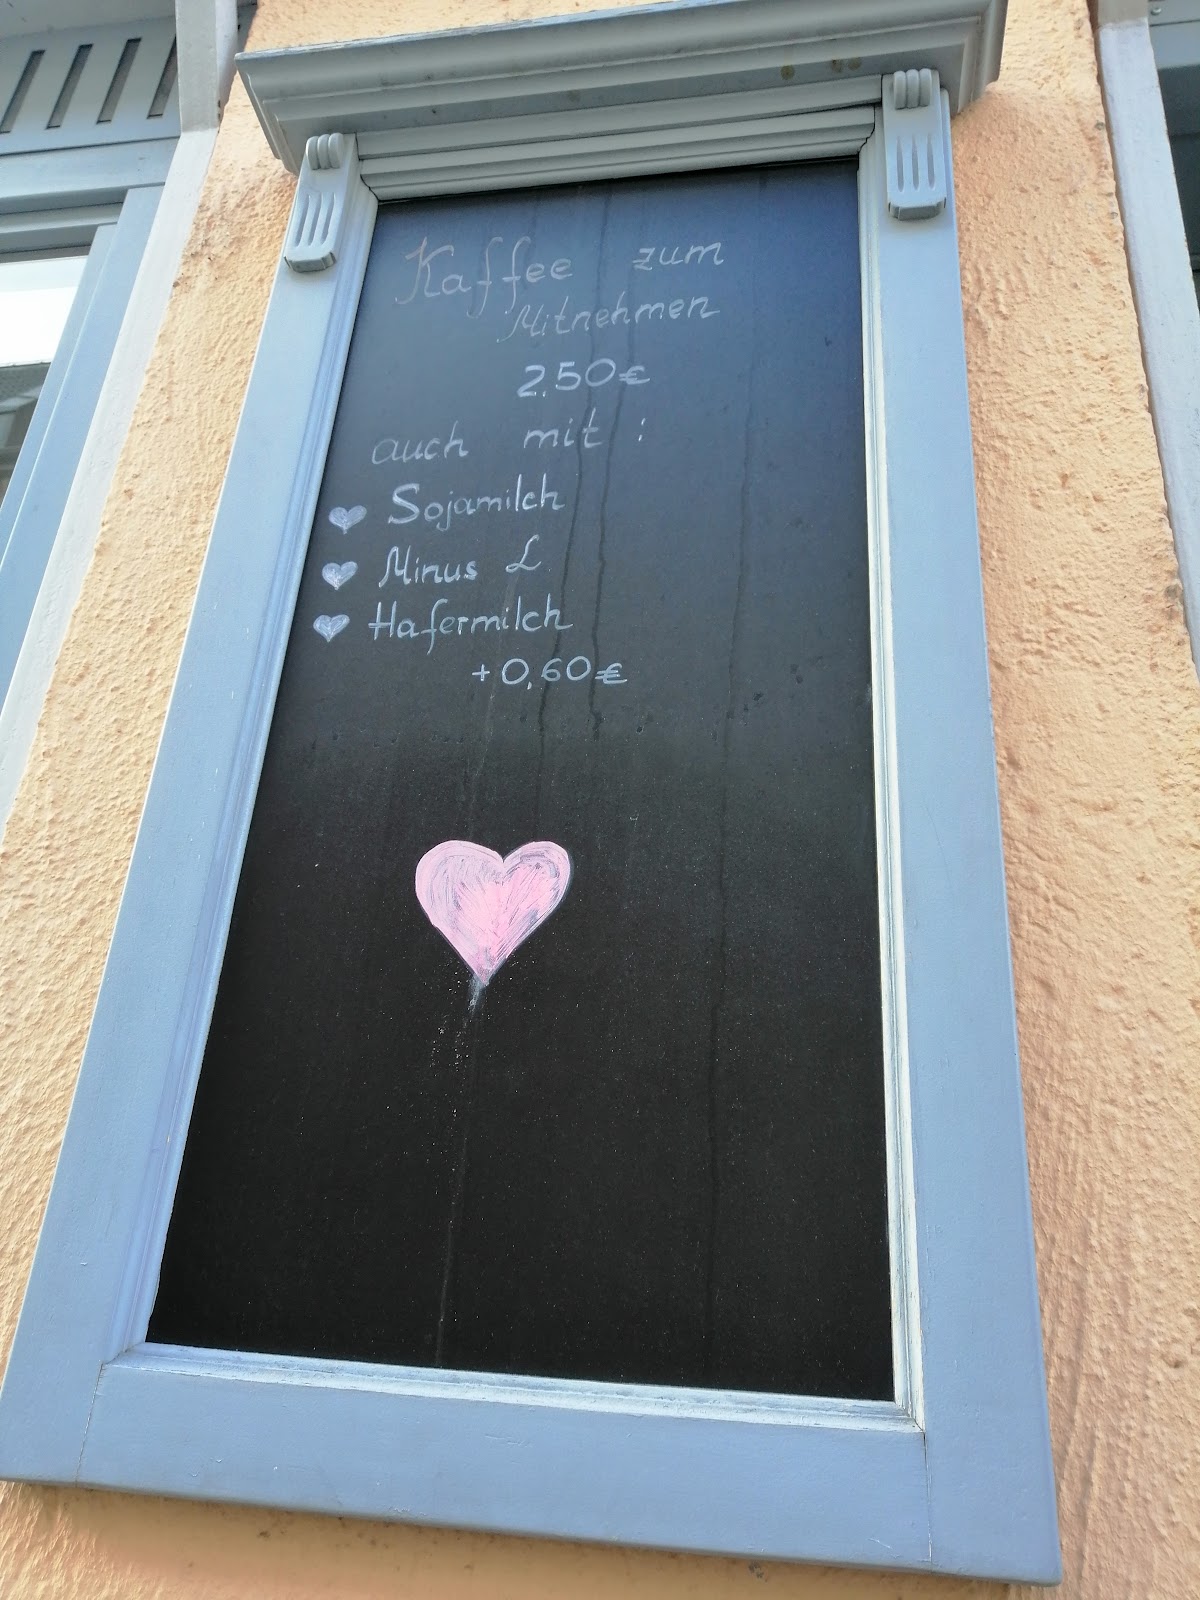 Kaffee zum
Mitnehmen
2,50€
auch mit :
Sojamilch
Minus L
Hafermilch
+0,60€